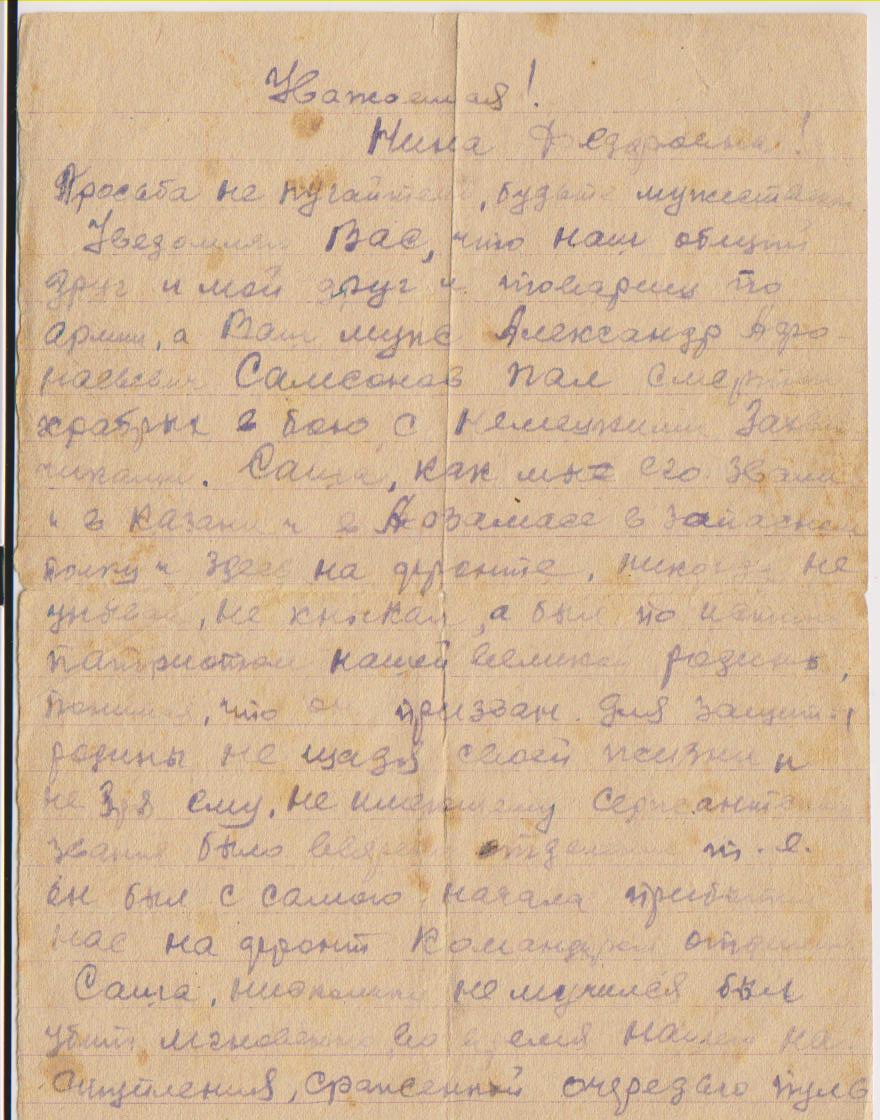 Уважаемая!
Нина Федоровна!
Просьба не пугайтесь, будьте мужествен
Уведомляю Вас, что наш общий
друг и мой друг и товарищ по
армии, а Ваш муж Александр Адро
наевич Самсонов пал смертью
храбрых в бою с немецкими Захват
чиками. Саша, как мы его звали
и в Казани и в Арзамасе в запасном
полку и здесь на фронте, никогда не
унывал, не хныкал, а был по истине
патриотом нашей великой родины,
понимая, что он призван для защиты
родины не щадя своей жизни и
не зря ему, не имевшему сержантского
звания было вверено отделение т.е.
он был с самого начала прибытия
нас на фронт Командиром отделения
Саша, нисколько не мучился был
убит мгновенно во время нашего на
ступления, сраженный очередью пуль